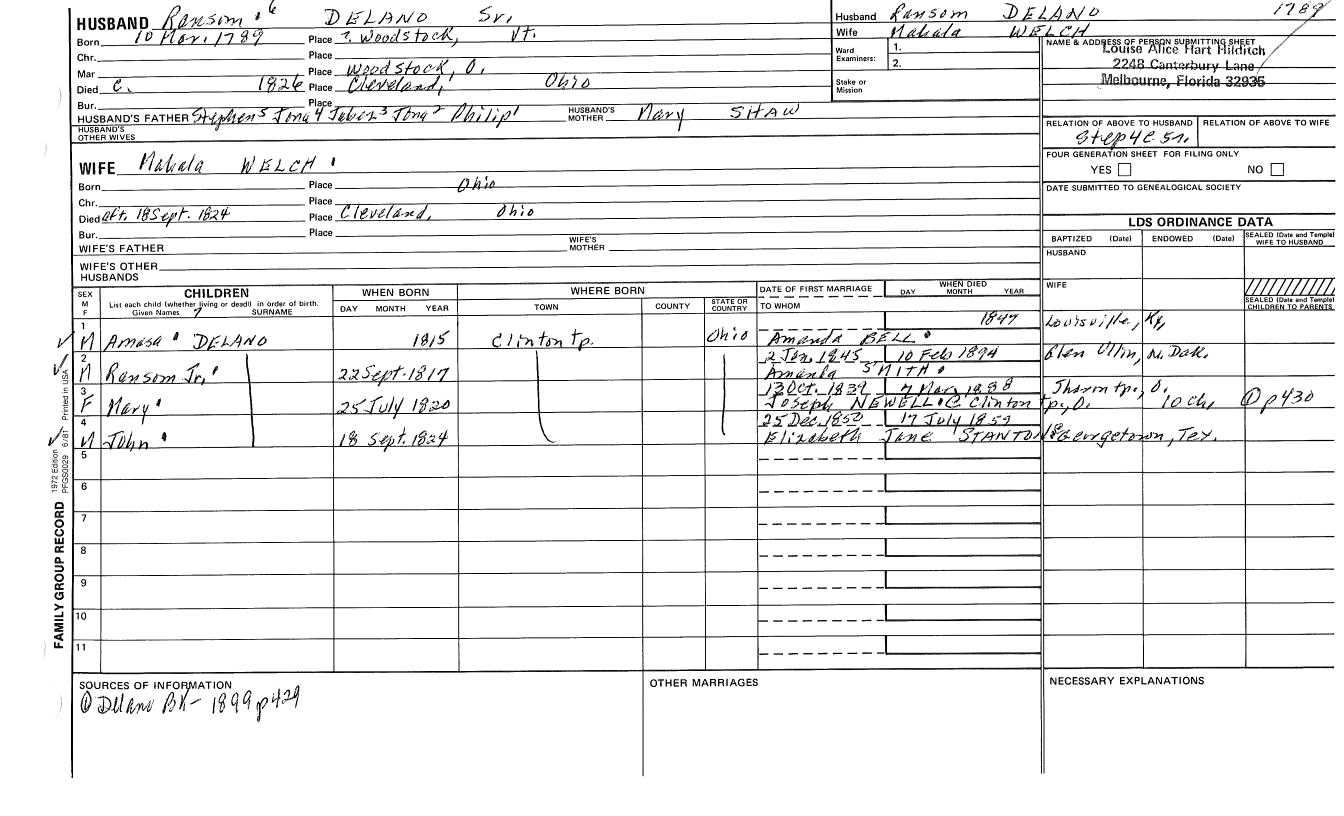 HUSBAND Ransom 6 DELANO Sr.
Born 10 Mar. 1789 Place ?. Woodstock, Vt.
Chr. Place
Mar Place Woodstock, O.
Died c. 1826 Place Cleveland, Ohio
Bur. Place
HUSBAND'S FATHER Stephen5 Jona4 Jabez3 Jona2 Philip1 HUSBAND'S MOTHER Mary SHAW
HUSBAND'S OTHER WIVES
WIFE Mahala WELCH
Born Place Ohio
Chr. Place
Died aft. 18 Sept. 1824 Place Cleveland, Ohio
Bur. Place
WIFE'S FATHER WIFE'S MOTHER
WIFE'S OTHER HUSBANDS
Husband Ransom DELANO 1789
Wife Mahala WELCH
Ward Examiners: 1.
2.
Stake or Mission
NAME & ADDRESS OF PERSON SUBMITTING SHEET
Louise Alice Hart Hilditch
2248 Canterbury Lane
Melbourne, Florida 32935
RELATION OF ABOVE TO HUSBAND RELATION OF ABOVE TO WIFE
Step 4C 5r.
FOUR GENERATION SHEET FOR FILING ONLY
YES NO
DATE SUBMITTED TO GENEALOGICAL SOCIETY
LDS ORDINANCE DATA
BAPTIZED (Date) ENDOWED (Date) SEALED (Date and Temple) WIFE TO HUSBAND
HUSBAND
WIFE
SEALED (Date and Temple) CHILDREN TO PARENTS
SEX M F CHILDREN WHEN BORN WHERE BORN DATE OF FIRST MARRIAGE WHEN DIED
List each child (whether living or dead) in order of birth. Given Names 7 SURNAME DAY MONTH YEAR TOWN COUNTY STATE OR COUNTRY TO WHOM DAY MONTH YEAR
1 1847 Louisville, Ky,
M Amasa DELANO 1815 Clinton tp. Ohio Amanda BELL
2 2 Jan. 1845 10 Feb 1894 Glen Ullin, N. Dak.
M Ransom Jr. 22 Sept. 1817 Amanda SMITH
3 13 Oct. 1839 7 Mar 1888 Tharon tp., O.
F Mary 25 July 1820 Joseph NEWELL C. Clinton tp., O. 10 Ch, ① p430
4 25 Dec. 1850 17 July 1859
M John 18 Sept. 1824 Elizabeth Jane STANTON Georgetown, Tex.
5
6
7
8
9
10
11
SOURCES OF INFORMATION
① Delano BK - 1899 p429
OTHER MARRIAGES
NECESSARY EXPLANATIONS
FAMILY GROUP RECORD
1972 Edition 6/81 Printed in USA
PFGS0029